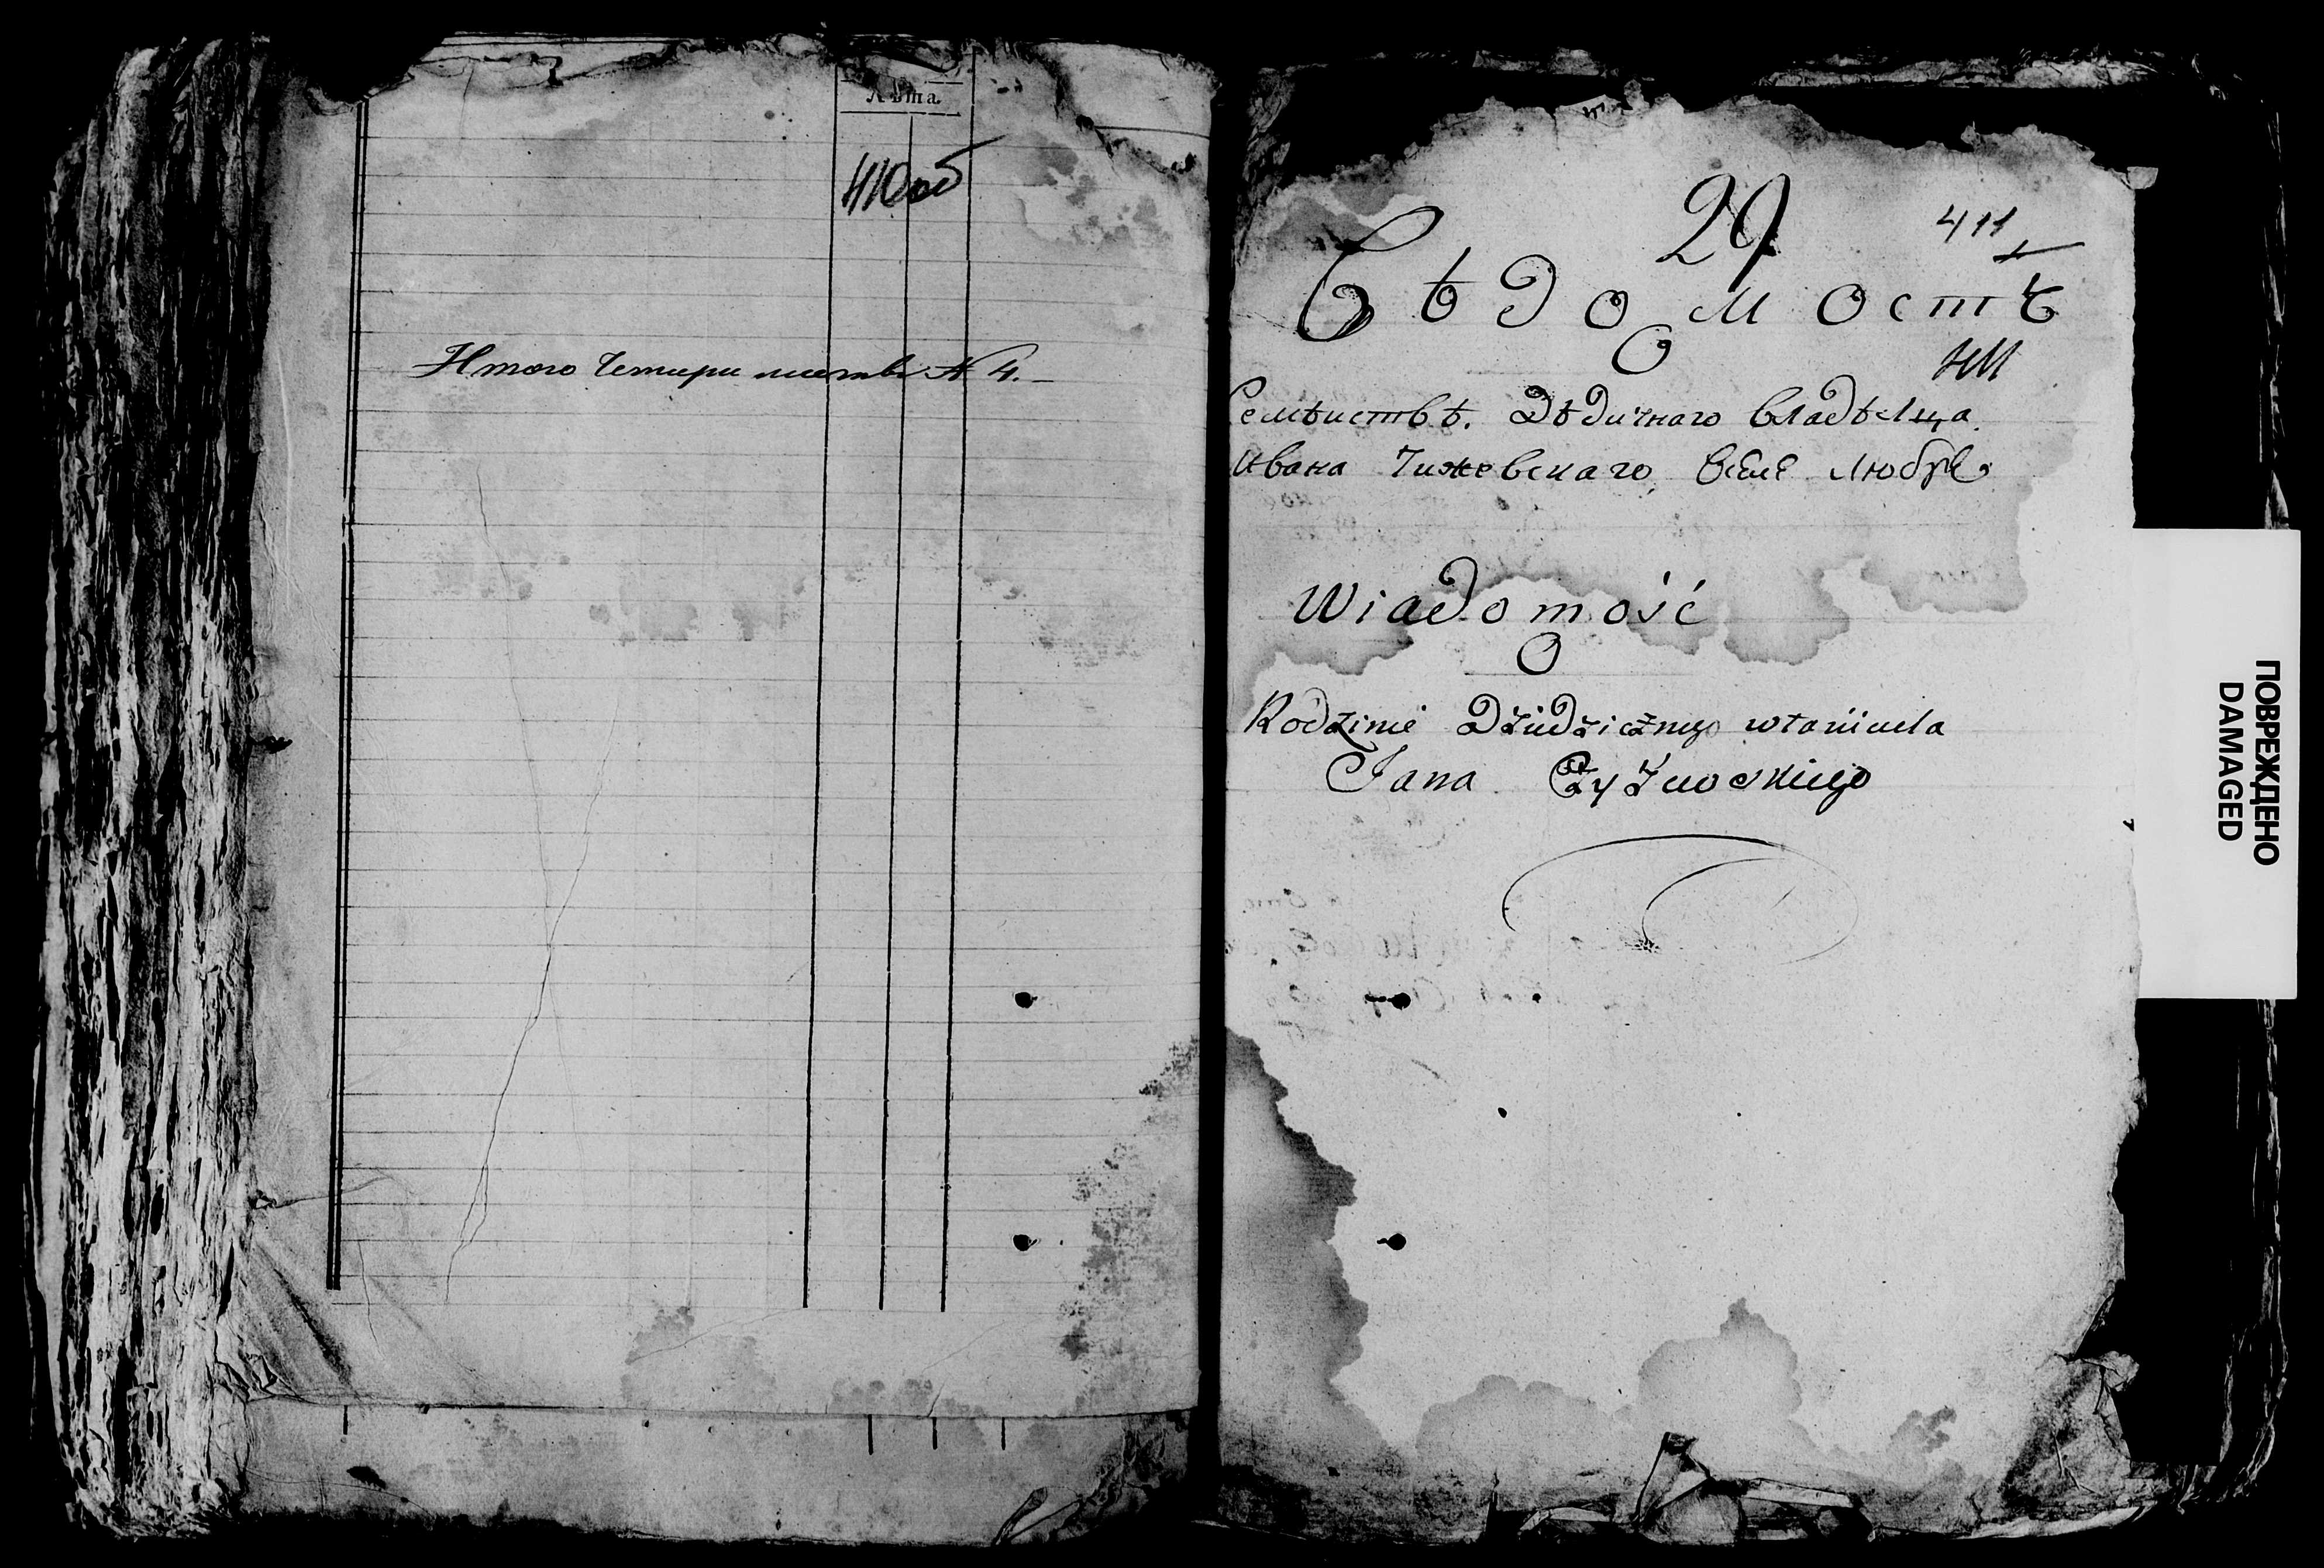 Лѣта.
410 об
Итого Четыри листовъ N 4.
29
411
Вѣдомость
О
411
Семѣиствѣ. Дѣдичнаго Владѣлца.
Ивана Чижевскаго,
Wiadomość
O
Rodzinie Dziedzicznego
Jana Czyżewskiego
ПОВРЕЖДЕНО
DAMAGED